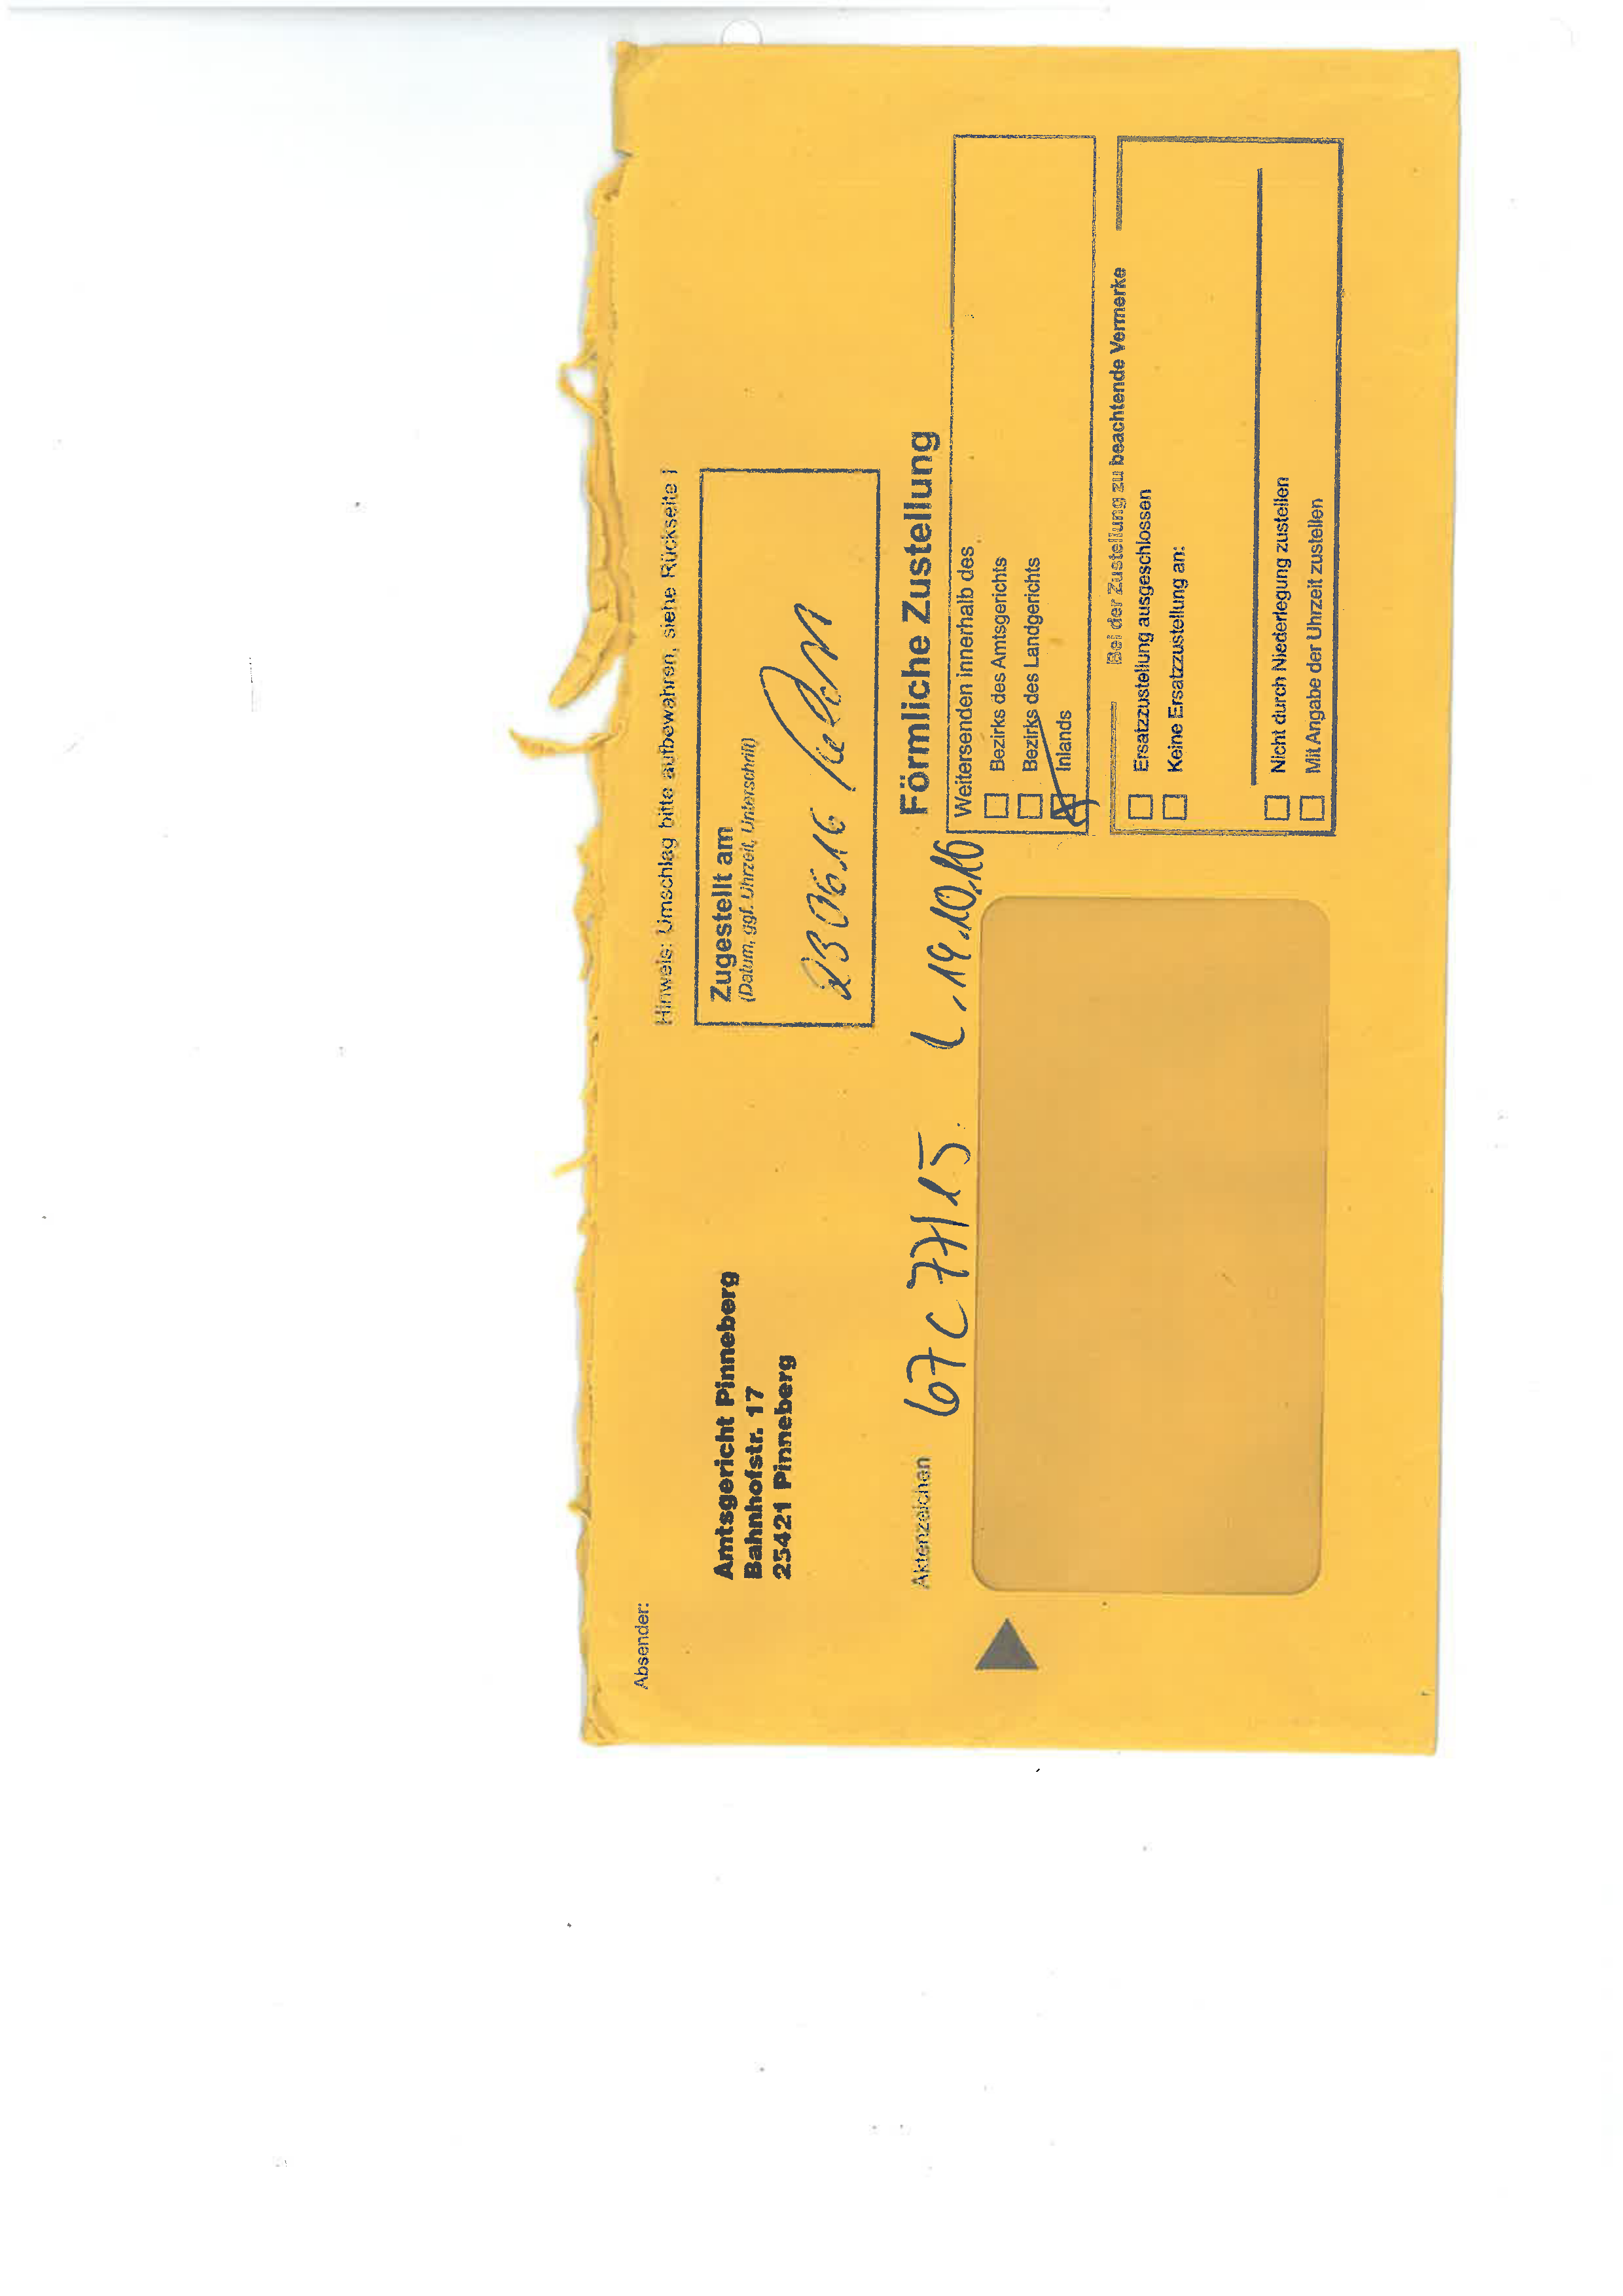 Absender:
Amtsgericht Pinneberg
Bahnhofstr. 17
25421 Pinneberg
Hinweis: Umschlag bitte aufbewahren, siehe Rückseite !
Zugestellt am
(Datum, ggf. Uhrzeit, Unterschrift)
23 06.16
Aktenzeichen 67 C 77/15. L. 19.10.16
Förmliche Zustellung
Weitersenden innerhalb des
Bezirks des Amtsgerichts
Bezirks des Landgerichts
Inlands
Bei der Zustellung zu beachtende Vermerke
Ersatzzustellung ausgeschlossen
Keine Ersatzzustellung an:
Nicht durch Niederlegung zustellen
Mit Angabe der Uhrzeit zustellen